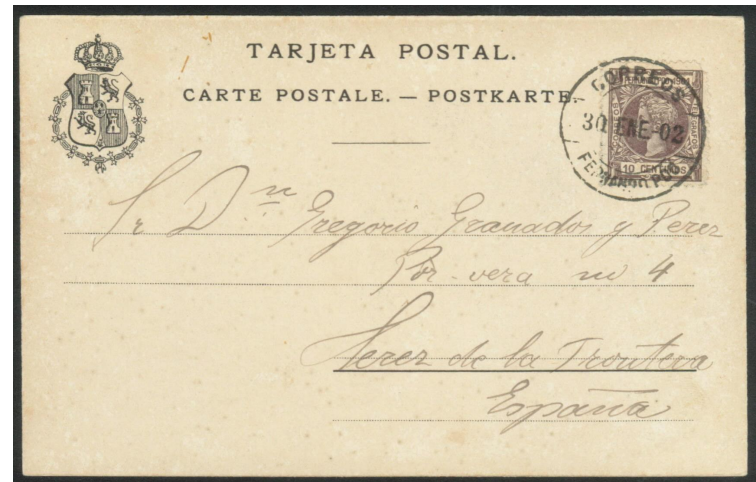 TARJETA POSTAL.
CARTE POSTALE. — POSTKARTE.
CORREOS
30 ENE-02
FERNANDO POO
10 CENTIMOS
Sr Dn Gregorio Granados y Perez
Por-vera no 4
Jerez de la Frontera
España